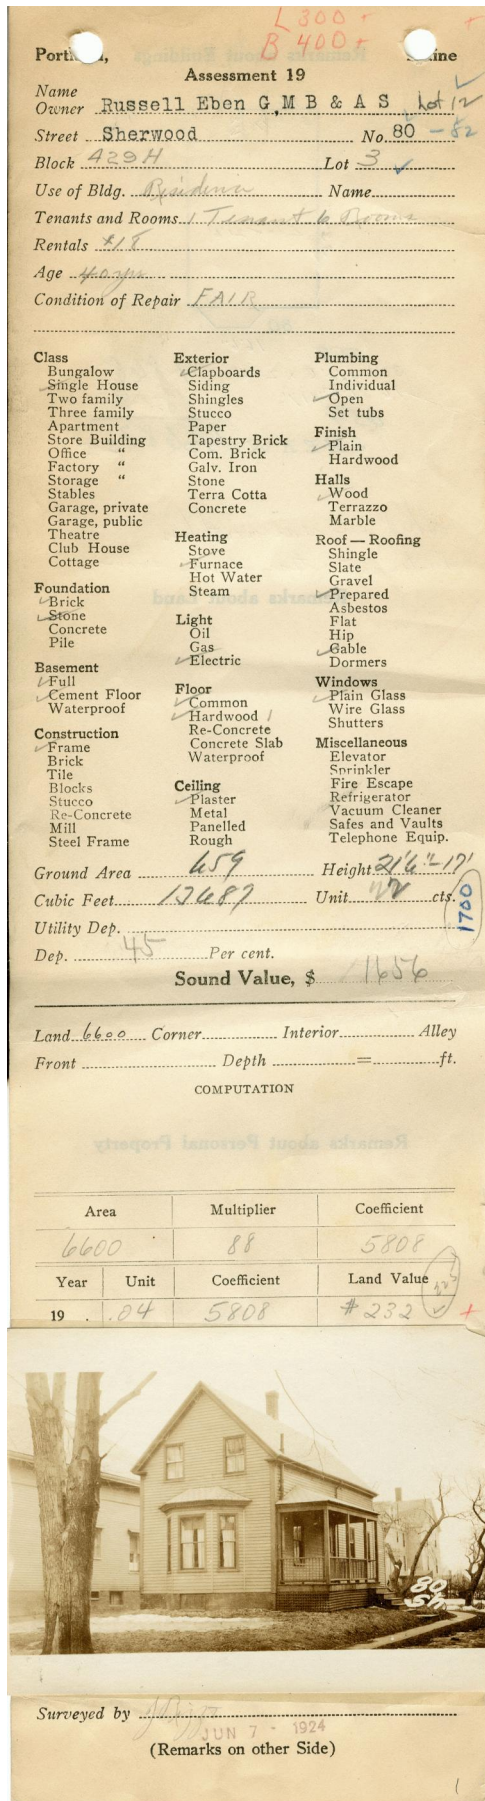 L 300 +
B 400 +
+
Portland, Maine
Assessment 19
Name
Owner Russell Eben G,M B & A S Lot 12
Street Sherwood No. 80 - 82
Block 429 H Lot 3
Use of Bldg. Residence Name
Tenants and Rooms 1 Tenant 6 Rooms
Rentals $18
Age 40 yrs
Condition of Repair FAIR
Class
Bungalow
Single House
Two family
Three family
Apartment
Store Building
Office "
Factory "
Storage "
Stables
Garage, private
Garage, public
Theatre
Club House
Cottage
Foundation
Brick
Stone
Concrete
Pile
Basement
Full
Cement Floor
Waterproof
Construction
Frame
Brick
Tile
Blocks
Stucco
Re-Concrete
Mill
Steel Frame
Exterior
Clapboards
Siding
Shingles
Stucco
Paper
Tapestry Brick
Com. Brick
Galv. Iron
Stone
Terra Cotta
Concrete
Heating
Stove
Furnace
Hot Water
Steam
Light
Oil
Gas
Electric
Floor
Common
Hardwood 1
Re-Concrete
Concrete Slab
Waterproof
Ceiling
Plaster
Metal
Panelled
Rough
Plumbing
Common
Individual
Open
Set tubs
Finish
Plain
Hardwood
Halls
Wood
Terrazzo
Marble
Roof — Roofing
Shingle
Slate
Gravel
Prepared
Asbestos
Flat
Hip
Gable
Dormers
Windows
Plain Glass
Wire Glass
Shutters
Miscellaneous
Elevator
Sprinkler
Fire Escape
Refrigerator
Vacuum Cleaner
Safes and Vaults
Telephone Equip.
Ground Area 659 Height 21'6"-17'
Cubic Feet 13687 Unit 22 cts.
1700
Utility Dep.
Dep. 45 Per cent.
Sound Value, $ 1656
Land 6600 Corner Interior Alley
Front Depth = ft.
COMPUTATION
Area Multiplier Coefficient
6600 88 5808
Year Unit Coefficient Land Value
19 . .04 5808 # 232 +
80
Sh
Surveyed by
JUN 7 - 1924
(Remarks on other Side)
1